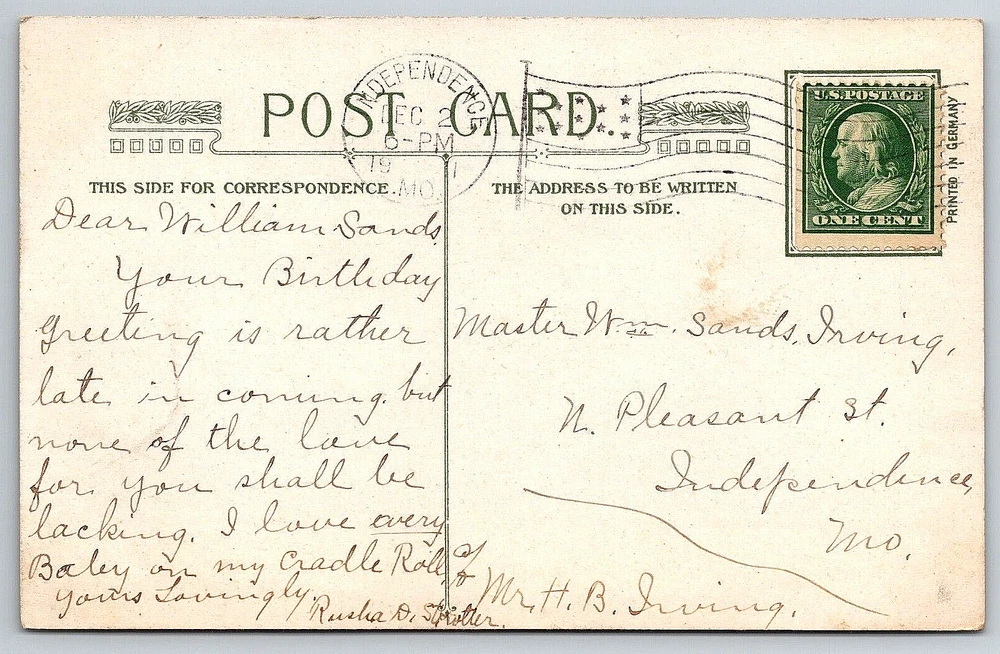 POST CARD.
INDEPENDENCE
DEC 2
6-PM
19 1
MO.
U.S. POSTAGE
ONE CENT
PRINTED IN GERMANY
THIS SIDE FOR CORRESPONDENCE.
Dear William Sands.
Your Birthday
Greeting is rather
late in coming. but
none of the love
for you shall be
lacking. I love every
Baby on my Cradle Roll,
Yours Lovingly,
D.
THE ADDRESS TO BE WRITTEN
ON THIS SIDE.
Master Wm. Sands, Irving,
N. Pleasant St.
Independence,
Mo.
c/o
Mr. H. B. Irving.